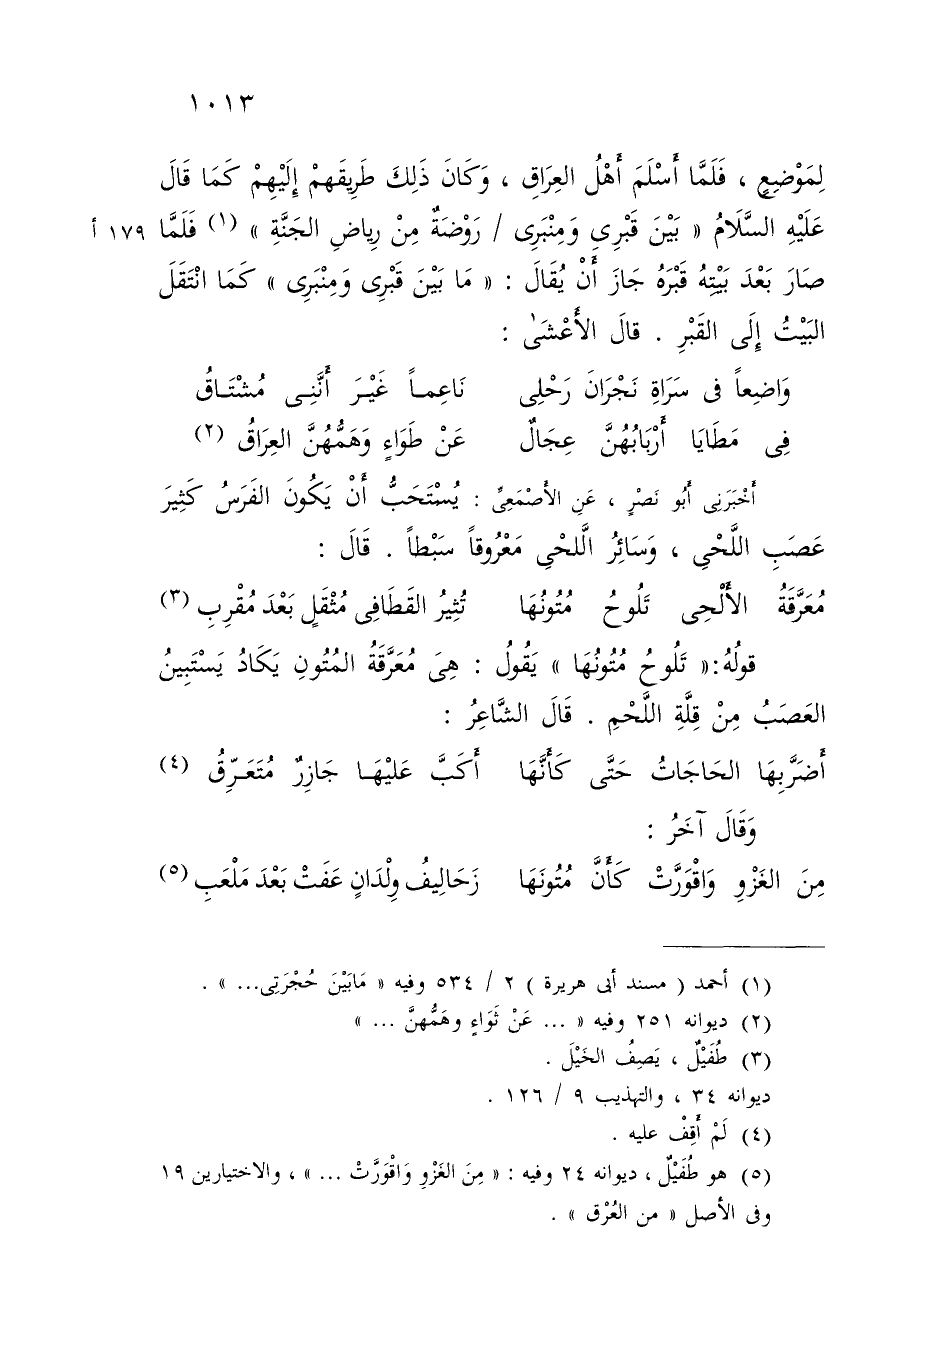 ١٠١٣
لِمَوْضِعٍ ، فَلَمَّا أَسْلَمَ أَهْلُ العِرَاقِ ، وَكَانَ ذَلِكَ طَرِيقَهمْ إِلَيْهِمْ كَمَا قَالَ
عَلَيْهِ السَّلَامُ « بَيْنَ قَبْرِي وَمِنْبَرِى / رَوْضَةٌ مِنْ رِياضِ الجَنَّةِ » (١) فَلَمَّا ١٧٩ أ
صَارَ بَعْدَ بَيْتِهُ قَبْرَهُ جَازَ أَنْ يُقَالَ : « مَا بَيْنَ قَبْرِى وَمِنْبَرِى » كَمَا انْتَقَلَ
البَيْتُ إِلَى القَبْرِ . قالَ الأَعْشَىٰ :
وَاضِعاً فى سَرَاةِ نَجْرَانَ رَحْلِى نَاعِمـاً غَيْـرَ أَنَّنِـى مُشْتَـاقُ
فِى مَطَايَا أَرْبَابُهُنَّ عِجَالٌ عَنْ طَوَاءٍ وَهَمُّهُنَّ العِرَاقُ (٢)
أَخْبَرَنِى أَبُو نَصْرٍ ، عَنِ الأَصْمَعِىِّ : يُسْتَحَبُّ أَنْ يَكُونَ الفَرَسُ كَثِيرَ
عَصَبِ اللَّحْىِ ، وَسَائِرُ الَّلحْىِ مَعْرُوقاً سَبْطاً . قَالَ :
مُعَرَّقَةُ الأَلْحِى تَلُوحُ مُتُونُهَا تُثِيرُ القَطَافِى مُنْقَلٍ بَعْدَ مُقْرِبِ (٣)
قولُهُ:« تَلُوحُ مُتُونُهَا » يَقُولُ : هِىَ مُعَرَّقَةُ المُتُونِ يَكَادُ يَسْتَبِينُ
العَصَبُ مِنْ قِلَّةِ اللَّحْمِ . قَالَ الشَّاعِرُ :
أَضرَّبِهَا الحَاجَاتُ حَتَّى كَأَنَّهَا أَكَبَّ عَلَيْهَـا جَازِرٌ مُتَعَـرِّقُ (٤)
وَقَالَ آخَرُ :
مِنَ الغَزْوِ وَاقْوَرَّتْ كَأَنَّ مُتُونَهَا زَحَالِيفُ وِلْدَانٍ عَفَتْ بَعْدَ مَلْعَبِ (٥)
(١) أحمد ( مسند أبى هريرة ) ٢ / ٥٣٤ وفيه « مَابَيْنَ حُجْرَتِى... » .
(٢) ديوانه ٢٥١ وفيه « ... عَنْ ثَوَاءٍ وهَمُّهنَّ ... »
(٣) طُفَيْلٌ ، يَصِفُ الخَيْلَ .
ديوانه ٣٤ ، والتهذيب ٩ / ١٢٦ .
(٤) لَمْ أَقِفْ عليه .
(٥) هو طُفَيْلٌ ، ديوانه ٢٤ وفيه : « مِنَ الغَزْوِ وَاقْوَرَّتْ ... » ، والاختيارين ١٩
وفى الأصل « من العُرْق » .